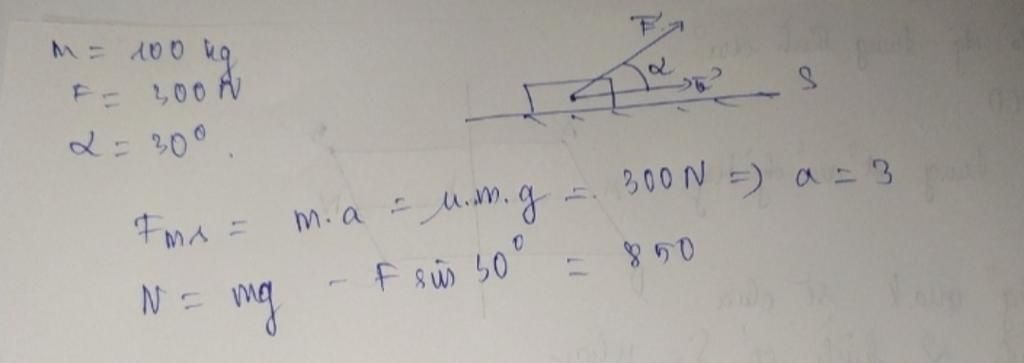 m = 100 kg
F = 300 N
α = 30⁰.
F α v S
Fms = m.a = μ.m.g = 300 N => a = 3
N = mg - F sin 30⁰ = 850